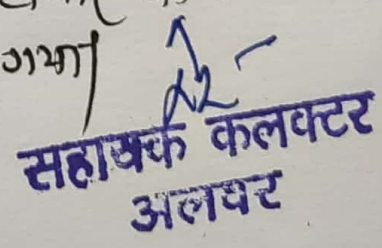 गया
सहायक कलक्टर
अलवर